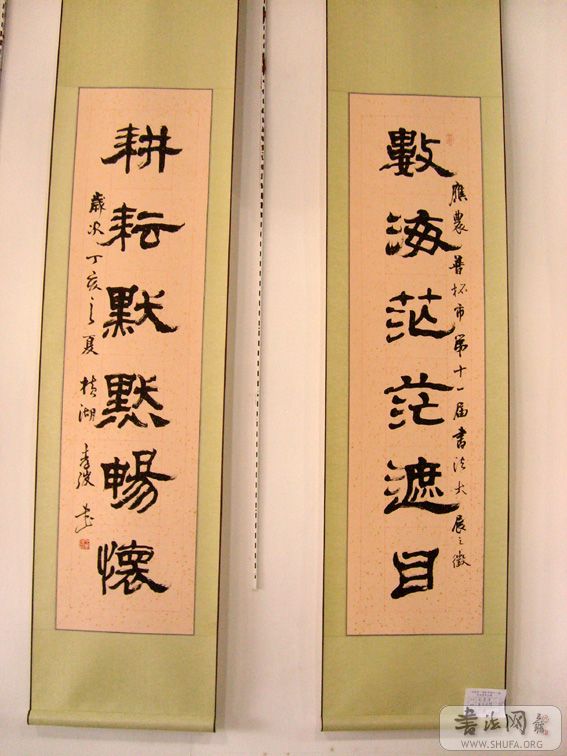 數海茫茫遮目
應農普杯市第十一届書法大展之徵
耕耘默默暢懷
歲次丁亥之夏 桂湖
書法网
WWW.SHUFA.ORG